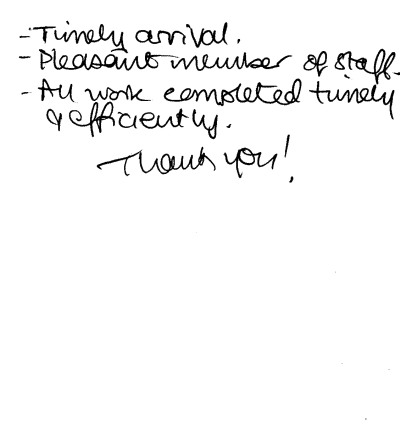 - Timely arrival.
- Pleasant member of staff.
- All work completed timely
& efficiently.
Thank you!